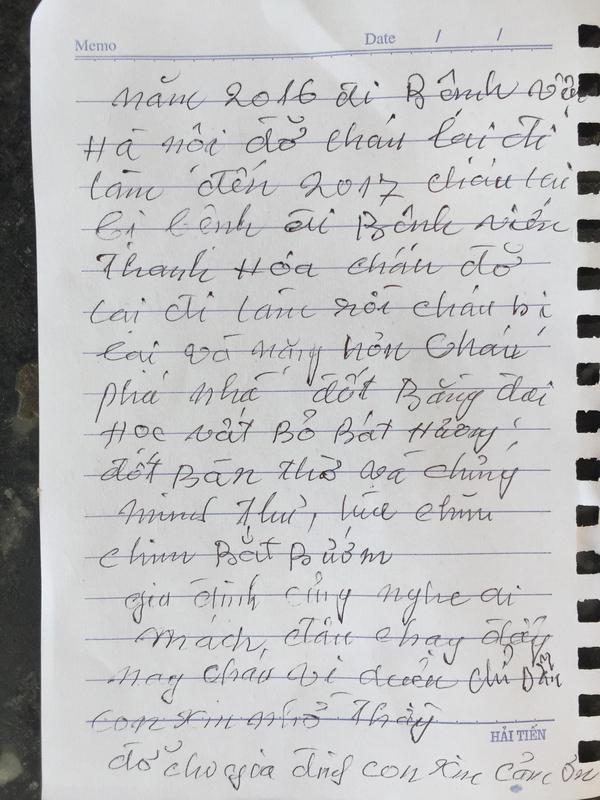 Memo Date / /
năm 2016 đi Bệnh viện
Hà nội đỡ cháu lại đi
làm đến 2017 cháu lại
bị bệnh đi Bệnh viện
Thanh Hóa cháu đỡ
lại đi làm rồi cháu bị
lại và nặng hơn Cháu
phá nhá đốt Bằng đai
Học vất Bỏ Bát Hương,
đốt Bàn thờ và chứng
minh thư, lúc chìm
chim Bắt Bướm
gia đình cũng nghe ai
mách, đâu chạy đấy
nay cháu vì chỉ Dẫn
con xin nhờ Thầy
HẢI TIẾN
đỡ cho gia đình con xin cảm ơn